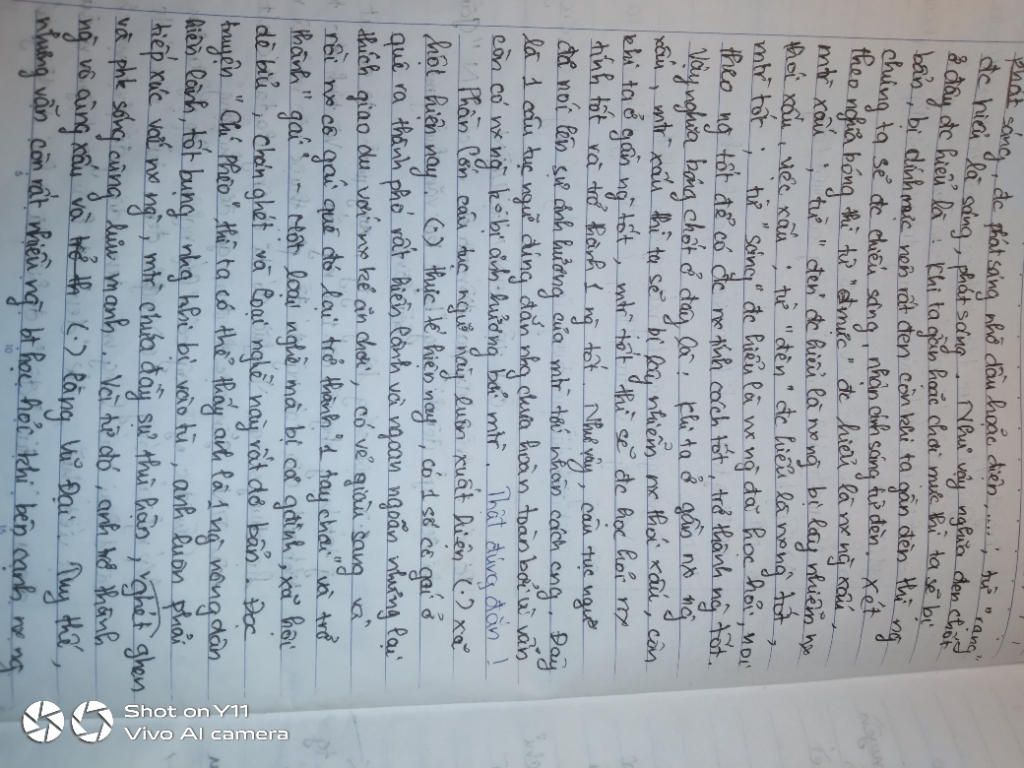 phát sáng, đc phát sáng nhờ dầu hoặc điện,...., từ "rạng"
đc hiểu là sáng, phát sáng. Như vậy nghĩa đen chữ
ở đây đc hiểu là: Khi ta gần hoặc chơi mực thì ta sẽ bị
bẩn, bị dính mực nên rất đen còn khi ta gần đèn thì
chúng ta sẽ đc chiếu sáng, nhận ánh sáng từ đèn. Xét
theo nghĩa bóng thì từ "mực" đc hiểu là nx ng xấu,
mtr xấu, từ "đen" đc hiểu là nx ng bị lây nhiễm nx
thói xấu, việc xấu, từ "đèn" đc hiểu là nx ng tốt,
mtr tốt, từ "sáng" đc hiểu là nx ng đã học thói, noi
theo ng tốt để có đc nx tính cách tốt, trở thành ng tốt.
Vậy nghĩa bóng chốt ở đây là: Khi ta ở gần nx ng
xấu, mtr xấu thì ta sẽ bị lây nhiễm nx thói xấu, còn
khi ta ở gần ng tốt, mtr tốt thì sẽ đc học hỏi nx
tính tốt và trở thành 1 ng tốt. Như vậy, câu tục ngữ
đã nói lên sự ảnh hưởng của mtr tới nhân cách cng. Đây
là 1 câu tục ngữ đúng đắn nhg chưa hoàn toàn bởi vì vẫn
còn có nx ng bị ảnh hưởng bởi mtr. Thật đúng đắn!
Phần lớn câu tục ngữ này luôn xuất hiện (.) xã
hội hiện nay. (.) thực tế hiện nay, có 1 số cô gái ở
quê ra thành phố rất hiền lành và ngoan ngoãn nhưng lại
thích giao du với nx kẻ ăn chơi, có vẻ giàu sang và
rồi nx cô gái quê đó lại trở thành "1 tay chơi" và trở
thành "gái" - một loại nghề mà bị cả gia đình, xã hội
dè bỉu, chán ghét và loại nghề này rất dơ bẩn. Đọc
truyện "Chí Phèo" thì ta có thể thấy anh là 1 ng nông dân
hiền lành, tốt bụng nhg khi bị vào tù, anh luôn phải
tiếp xúc với nx ng, mtr chứa đầy sự thù hằn, ghét ghen
và phk sống cùng lưu manh. Và từ đó, anh trở thành
ng vô cùng xấu và (.) làng Vũ Đại. Tuy thế,
nhưng vẫn còn rất nhiều ng bt học hỏi khi bên cạnh nx ng
Shot on Y11
Vivo AI camera